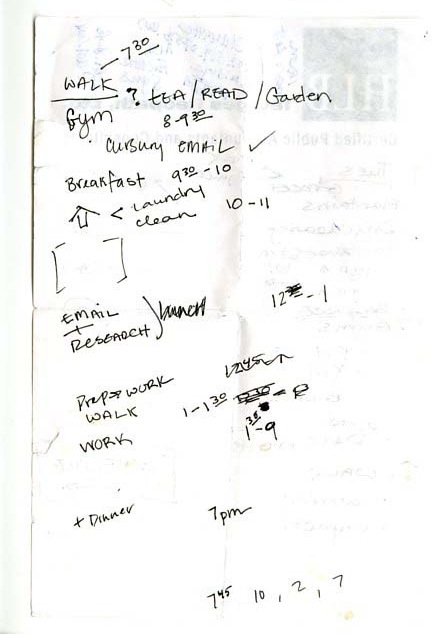 7³⁰
WALK
Gym ? tEA / READ / Garden
8-9³⁰
Cursury EMAIL ✓
Breakfast 9³⁰-10
< Laundry
clean 10-11
[ ]
EMAIL
+
RESEARCH ) launch 12 - 1
1245
Prep > WORK
WALK 1-1³⁰
WORK 1³⁰-9
+ Dinner 7pm
7⁴⁵ 10, 2, 7